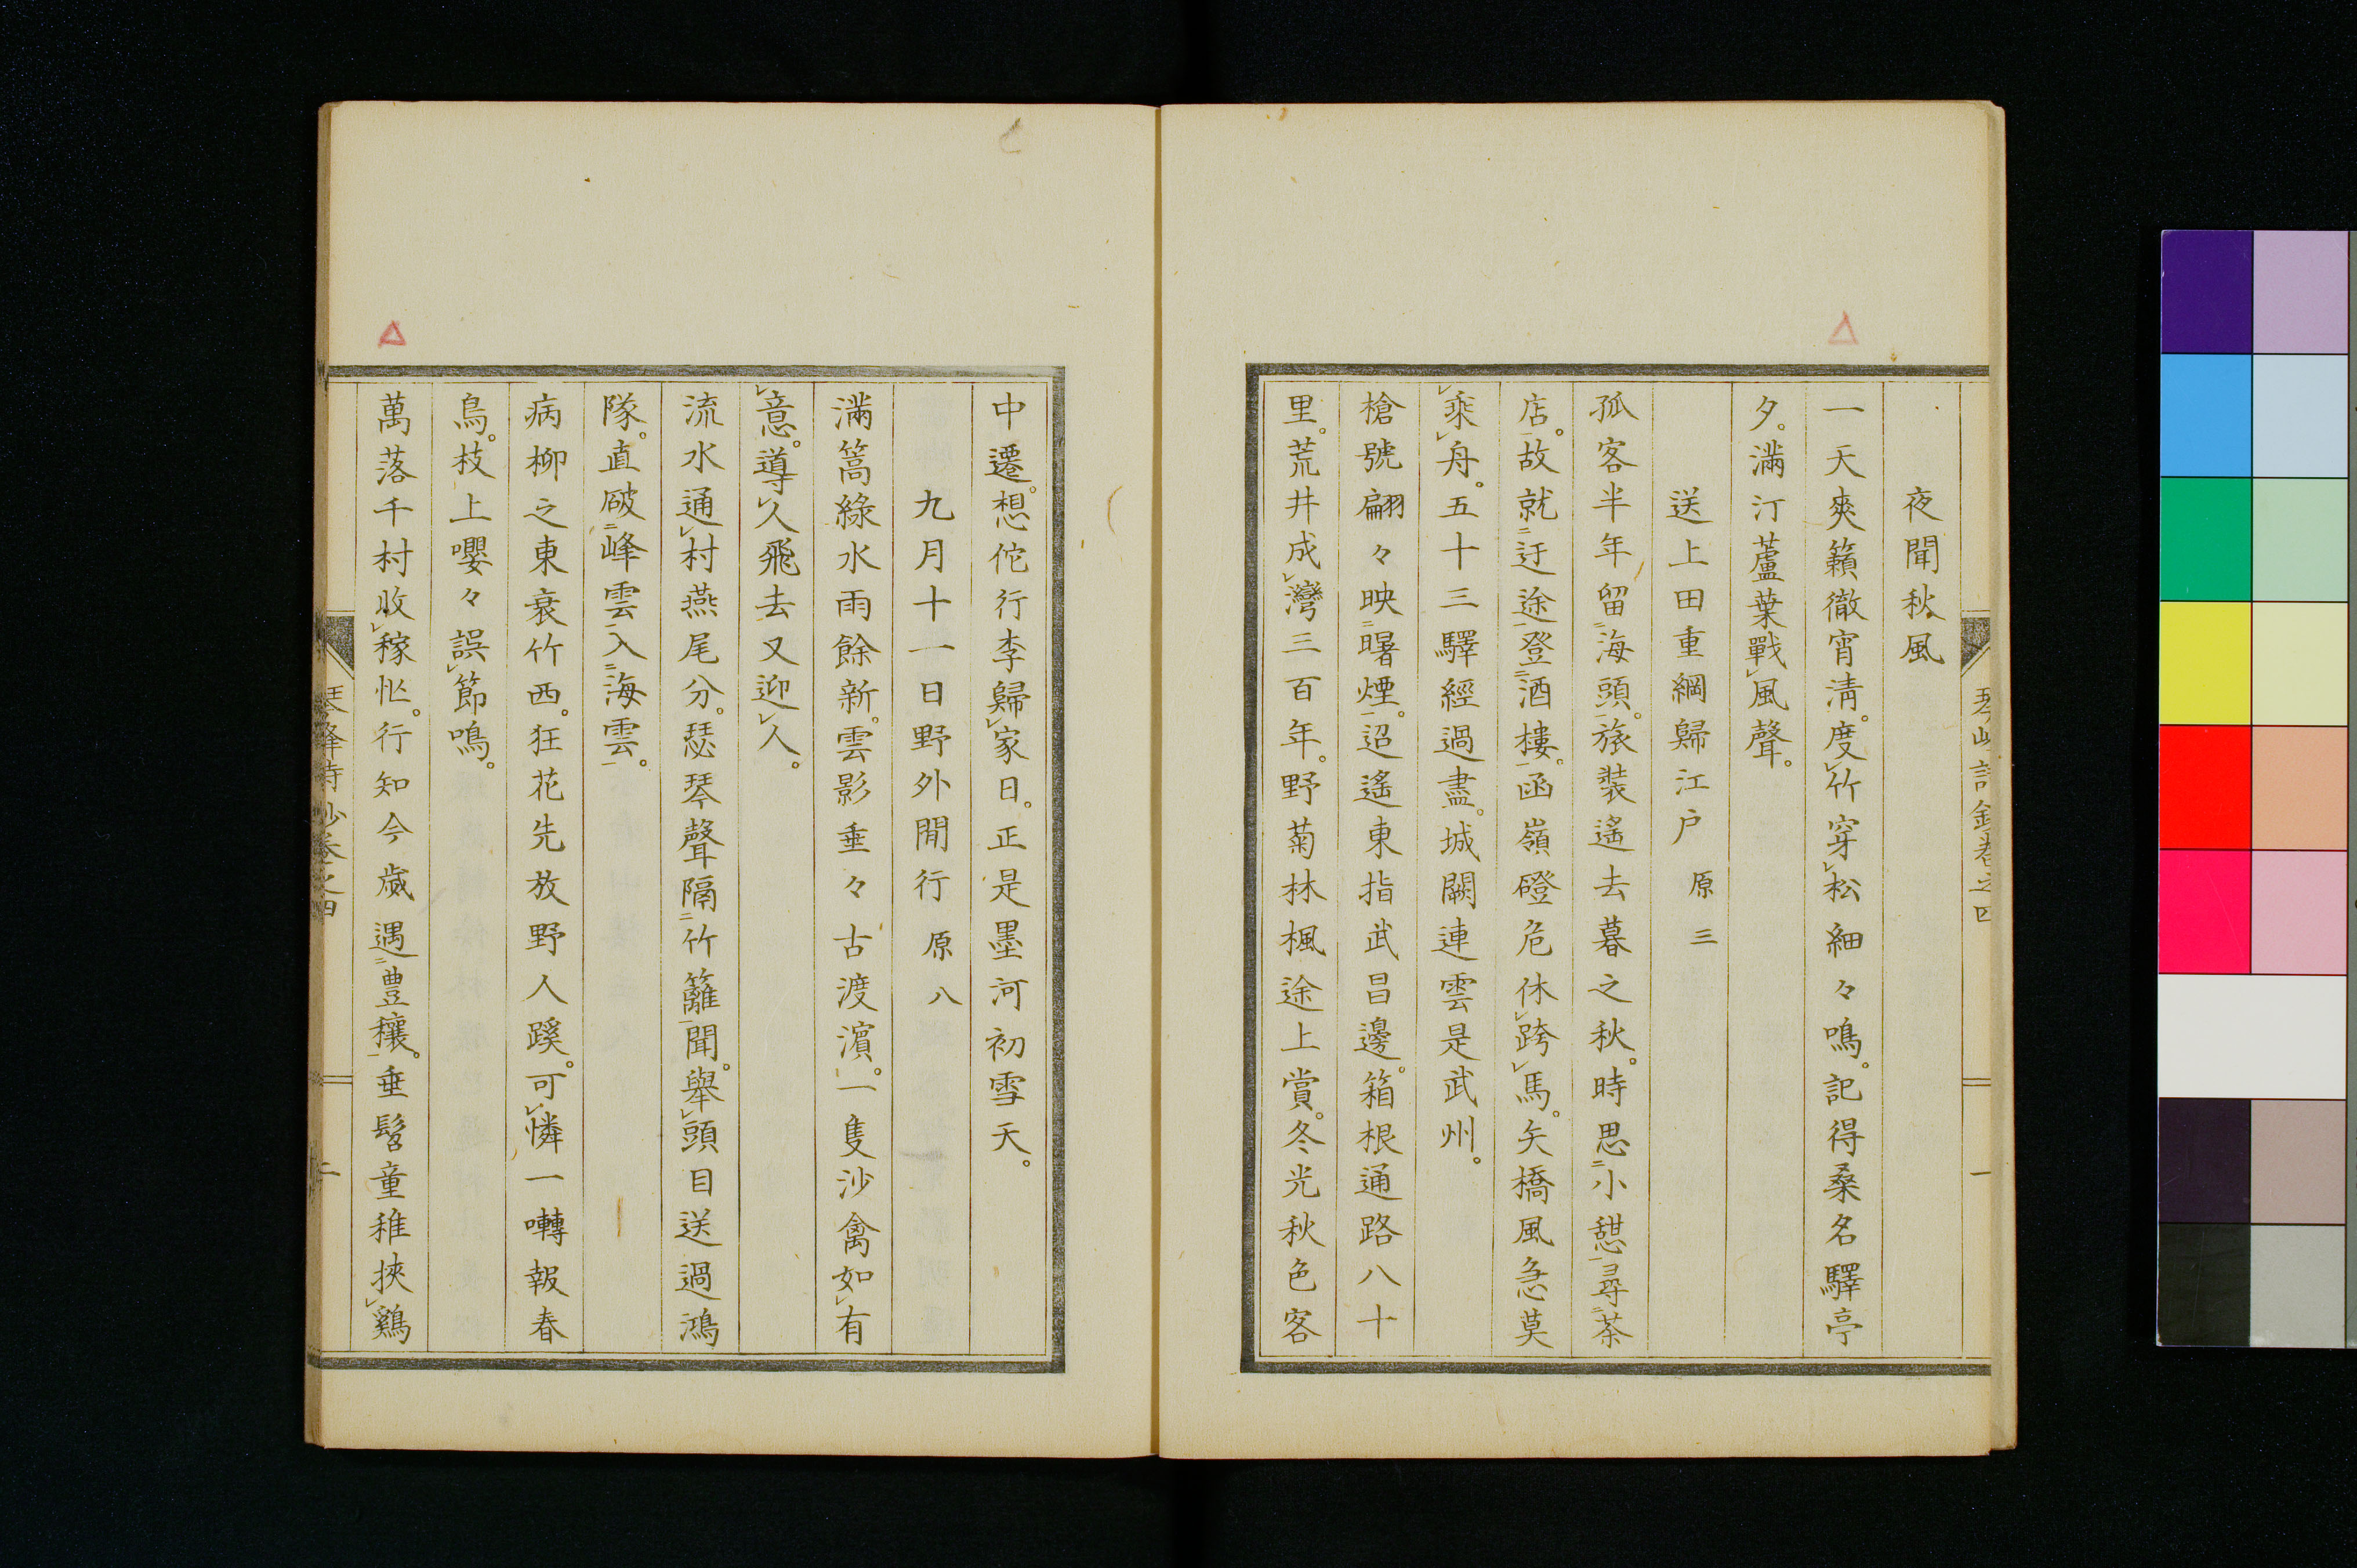 夜聞秋風
一天爽籟徹宵淸。度㆑竹穿㆑松細々鳴。記得桑名驛亭
夕。滿汀蘆葉戰㆑風聲。
送上田重綱歸江戸 原三
孤客半年留㆓海頭㆒。旅裝遙去暮之秋。時思㆓小憩㆒尋㆓茶
店㆒。故就㆓迂途㆒登㆓酒樓㆒。函嶺磴危休㆑跨㆑馬。矢橋風急莫
㆑乘㆑舟。五十三驛經過盡。城闕連雲是武州。
槍號翩々映㆓曙煙㆒。迢遙東指武昌邊。箱根通路八十
里。荒井成㆑灣三百年。野菊林楓途上賞。冬光秋色客
中遷。想佗行李歸㆑家日。正是墨河初雪天。
九月十一日野外閒行 原八
滿篙綠水雨餘新。雲影垂々古渡濵。一隻沙禽如㆑有
㆑意。導㆑人飛去又迎㆑人。
流水通㆑村燕尾分。瑟琴聲隔㆓竹籬㆒聞。擧㆑頭目送過鴻
隊。直破㆓峰雲㆒入㆓海雲㆒。
病柳之東衰竹西。狂花先放野人蹊。可㆑憐一囀報春
鳥。枝上嚶々誤㆑節鳴。
萬落千村收㆑稼忙。行知今歲遇㆓豊穰㆒。垂髫童稚挾㆑鷄
琴峰詩鈔卷之四
一
琴峰詩鈔卷之四
二